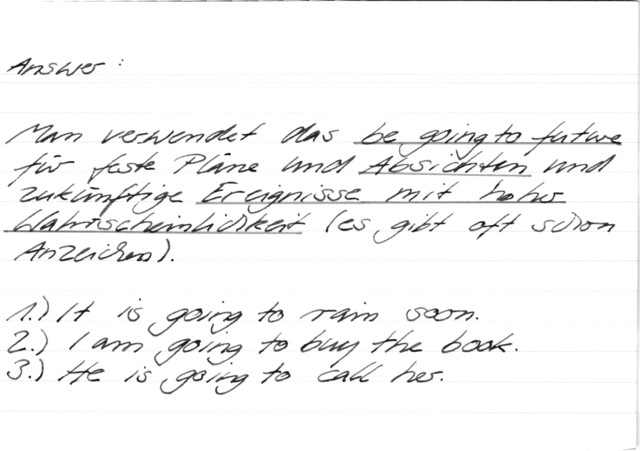 Answer:
Man verwendet das be going to future
für feste Pläne und Absichten und
zukünftige Ereignisse mit hoher
Wahrscheinlichkeit (es gibt oft schon
Anzeichen).
1.) It is going to rain soon.
2.) I am going to buy the book.
3.) He is going to call her.